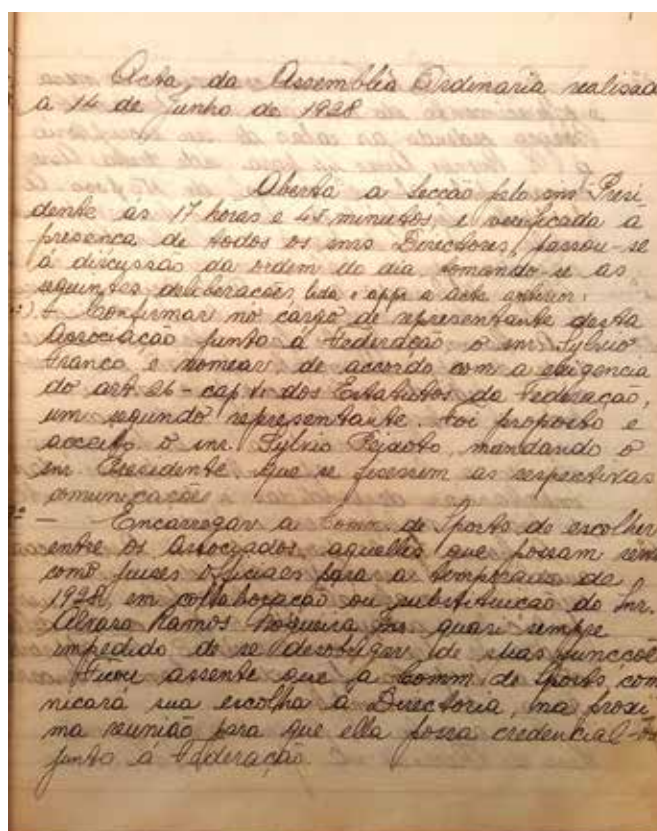 Acta, da Assembléa Ordinaria realisad
a 14 de Junho de 1928
Aberta a secção pelo snr Presi
dente ás 17 horas e 45 minutos, e verificada a
presença de todos os snrs Directores, passou-se
á discussão da ordem do dia tomando-se as
seguintes deliberações, lida e appr a acta anterior:
Confirmar no cargo de representante desta
Associação junto á Federação o snr. Sylvio
Franco e nomear, de accordo com a exigencia
do art. 26 - cap VI dos Estatutos da Federação,
um segundo representante. Foi proposto e
acceito o snr. Sylvio Peixoto, mandando o
snr Presidente que se fisessem as respectivas
communicações
— Encarregar a Comm. de Sports de escolher
entre os associados, aquelles que possam servi
como juises officiaes para a temporada de
1928, em collaboração ou substituição do Snr.
Alvaro Ramos Nogueira quasi sempre
impedido de se desobrigar de suas funcçõe
Ficou assente que a Comm de Sports com
nicará sua escolha á Directoria, na proxi
ma reunião para que ella possa credencial-os
junto á Federação.